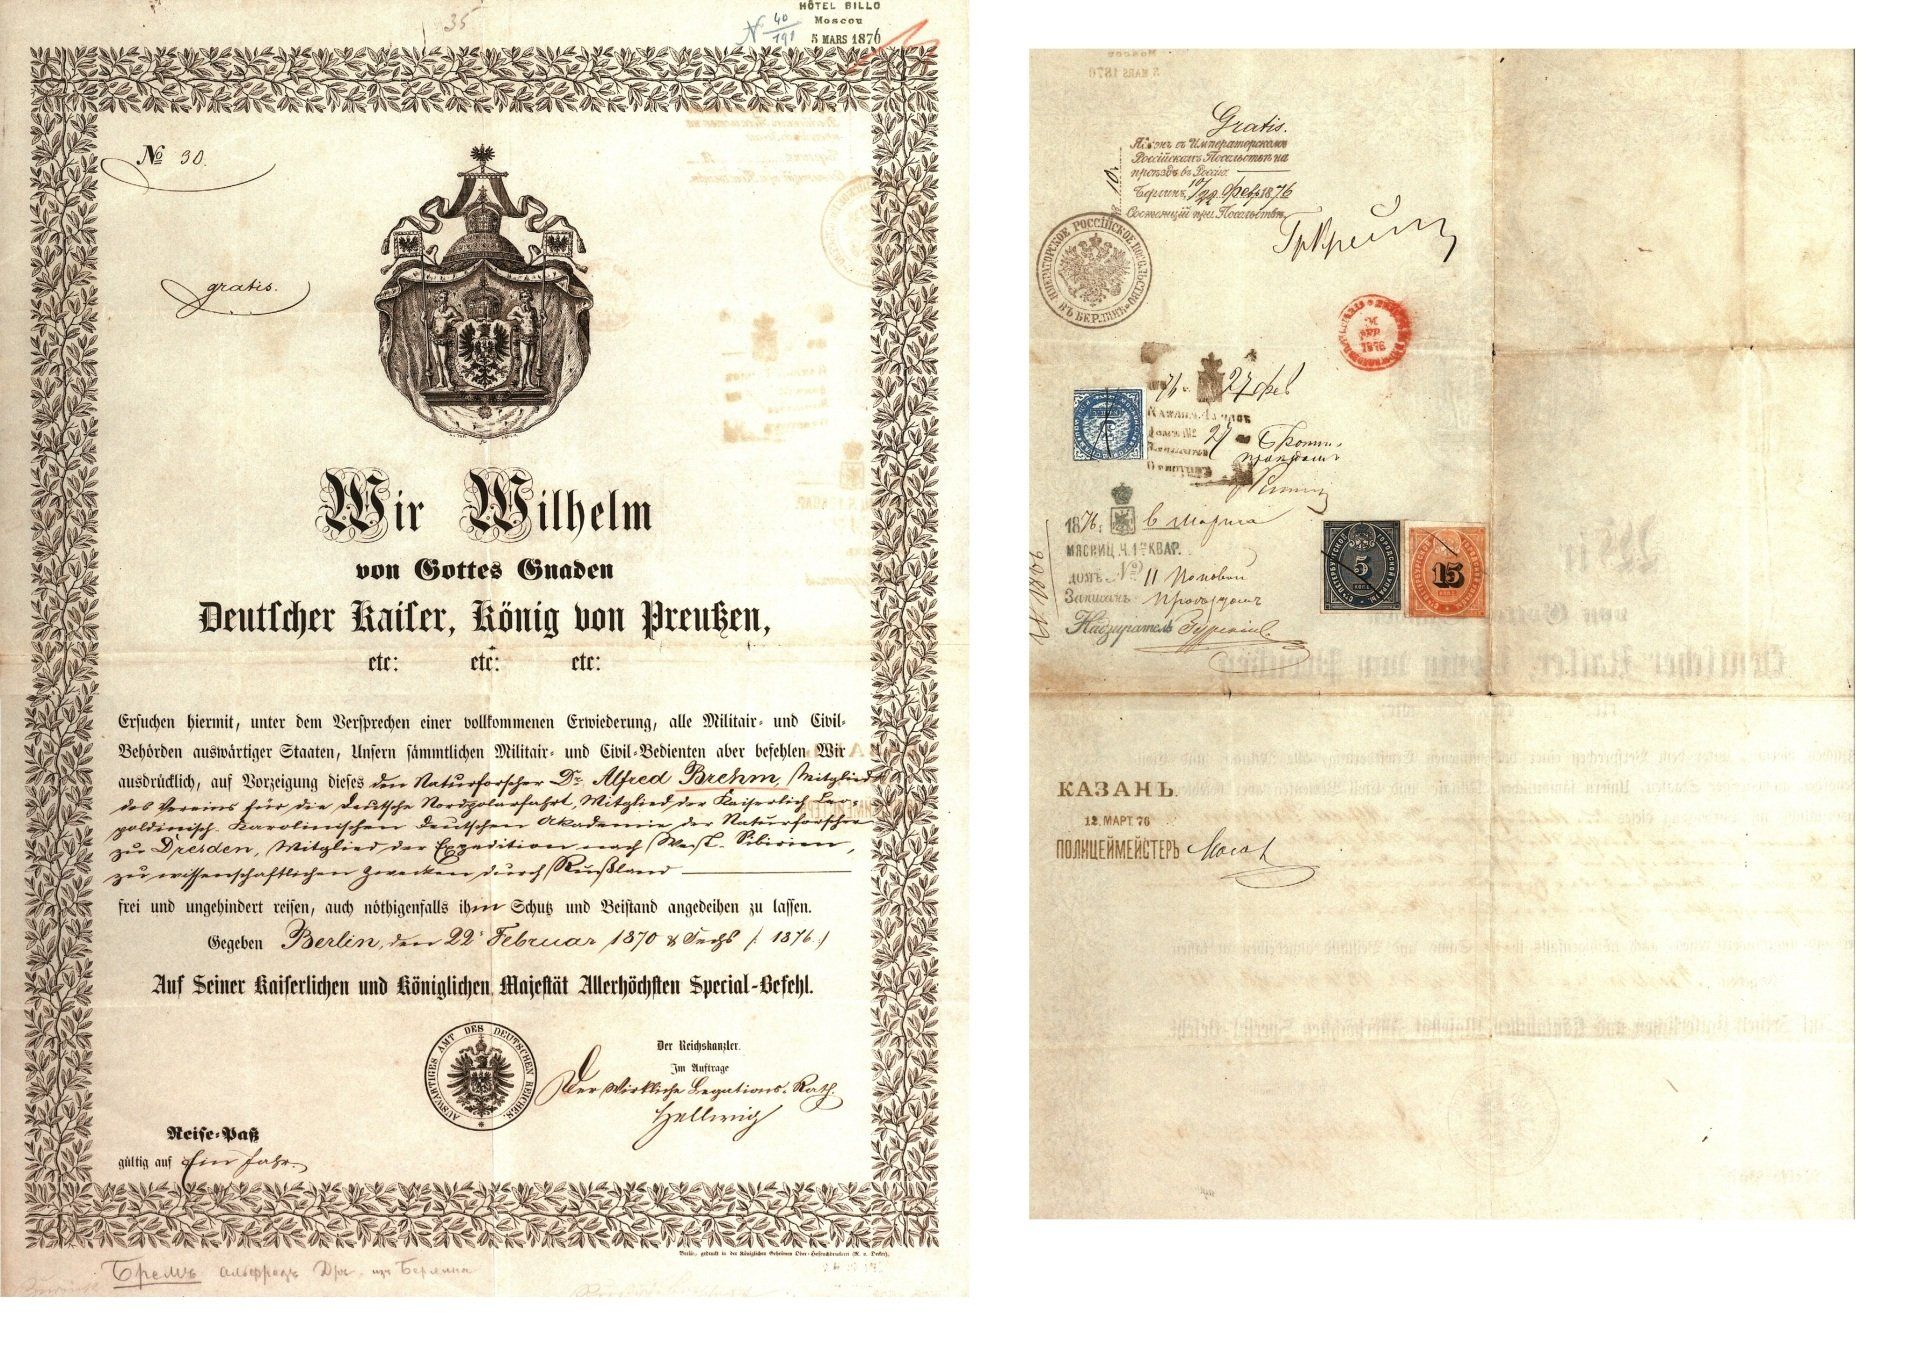 35
HÔTEL BILLO
Moscou
5 MARS 1876
N 40/191
№ 30.
gratis.
Wir Wilhelm
von Gottes Gnaden
Deutscher Kaiser, König von Preußen,
etc: etc: etc:
Ersuchen hiermit, unter dem Versprechen einer vollkommenen Erwiederung, alle Militair- und Civil-
Behörden auswärtiger Staaten, Unsern sämmtlichen Militair- und Civil-Bedienten aber befehlen Wir
ausdrücklich, auf Vorzeigung dieses den Naturforscher Dr. Alfred Brehm, Mitglied
des Vereins für die Deutsche Nordpolarfahrt, Mitglied der Kaiserlich Leo-
poldinisch. Karolinischen Deutschen Akademie der Naturforscher
zu Dresden, Mitglied der Expedition nach West-Sibirien,
zu wissenschaftlichen Zwecken durch Rußland
frei und ungehindert reisen, auch nöthigenfalls ihm Schutz und Beistand angedeihen zu lassen.
Gegeben Berlin, den 22. Februar 1870 & Sechs /: 1876 :/
Auf Seiner Kaiserlichen und Königlichen Majestät Allerhöchsten Special-Befehl.
AUSWÄRTIGES AMT DES DEUTSCHEN REICHES
Der Reichskanzler.
Im Auftrage
Der Wirkliche Legations-Rath
Hellwig
Reise-Paß
gültig auf Ein Jahr.
Berlin, gedruckt in der Königlichen Geheimen Ober-Hofbuchdruckerei (R. v. Decker).
Бремъ Альфредъ Др. из Берлина
Gratis.
Явленъ въ Императорскомъ
Россійскомъ Посольствѣ на
проѣздъ въ Россію.
Берлинъ, 10/22 Фев 1876
Состоящій при Посольствѣ,
10.
ИМПЕРАТОРСКОЕ РОССІЙСКОЕ ПОСОЛЬСТВО ВЪ БЕРЛИНѢ
1876
76 27 фев
27
1876 6 марта
МЯСНИЦ. Ч. 1 КВАР.
домъ № 11
Записанъ
Надзиратель
С.ПЕТЕРБУРГСКОЕ ГОРОДСКОЙ 5 КОП.
С.ПЕТЕРБУРГСКОЕ ГОРОДСКОЙ 15 КОП.
КАЗАНЬ.
12 МАРТ. 76
ПОЛИЦЕЙМЕЙСТЕРЪ